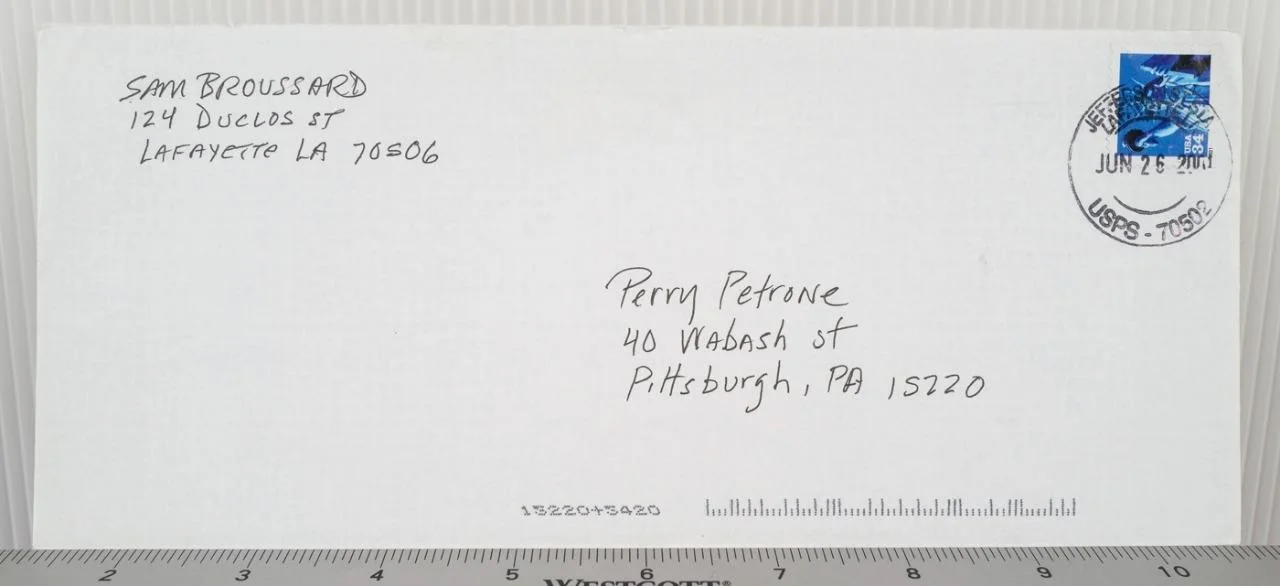 SAM BROUSSARD
124 DUCLOS ST
LAFAYETTE LA 70506
USA
34
JUN 26 2001
USPS - 70502
Perry Petrone
40 Wabash st
Pittsburgh, PA 15220
15220+5420
2 3 4 5 6 7 8 9 10
WESTCOTT®